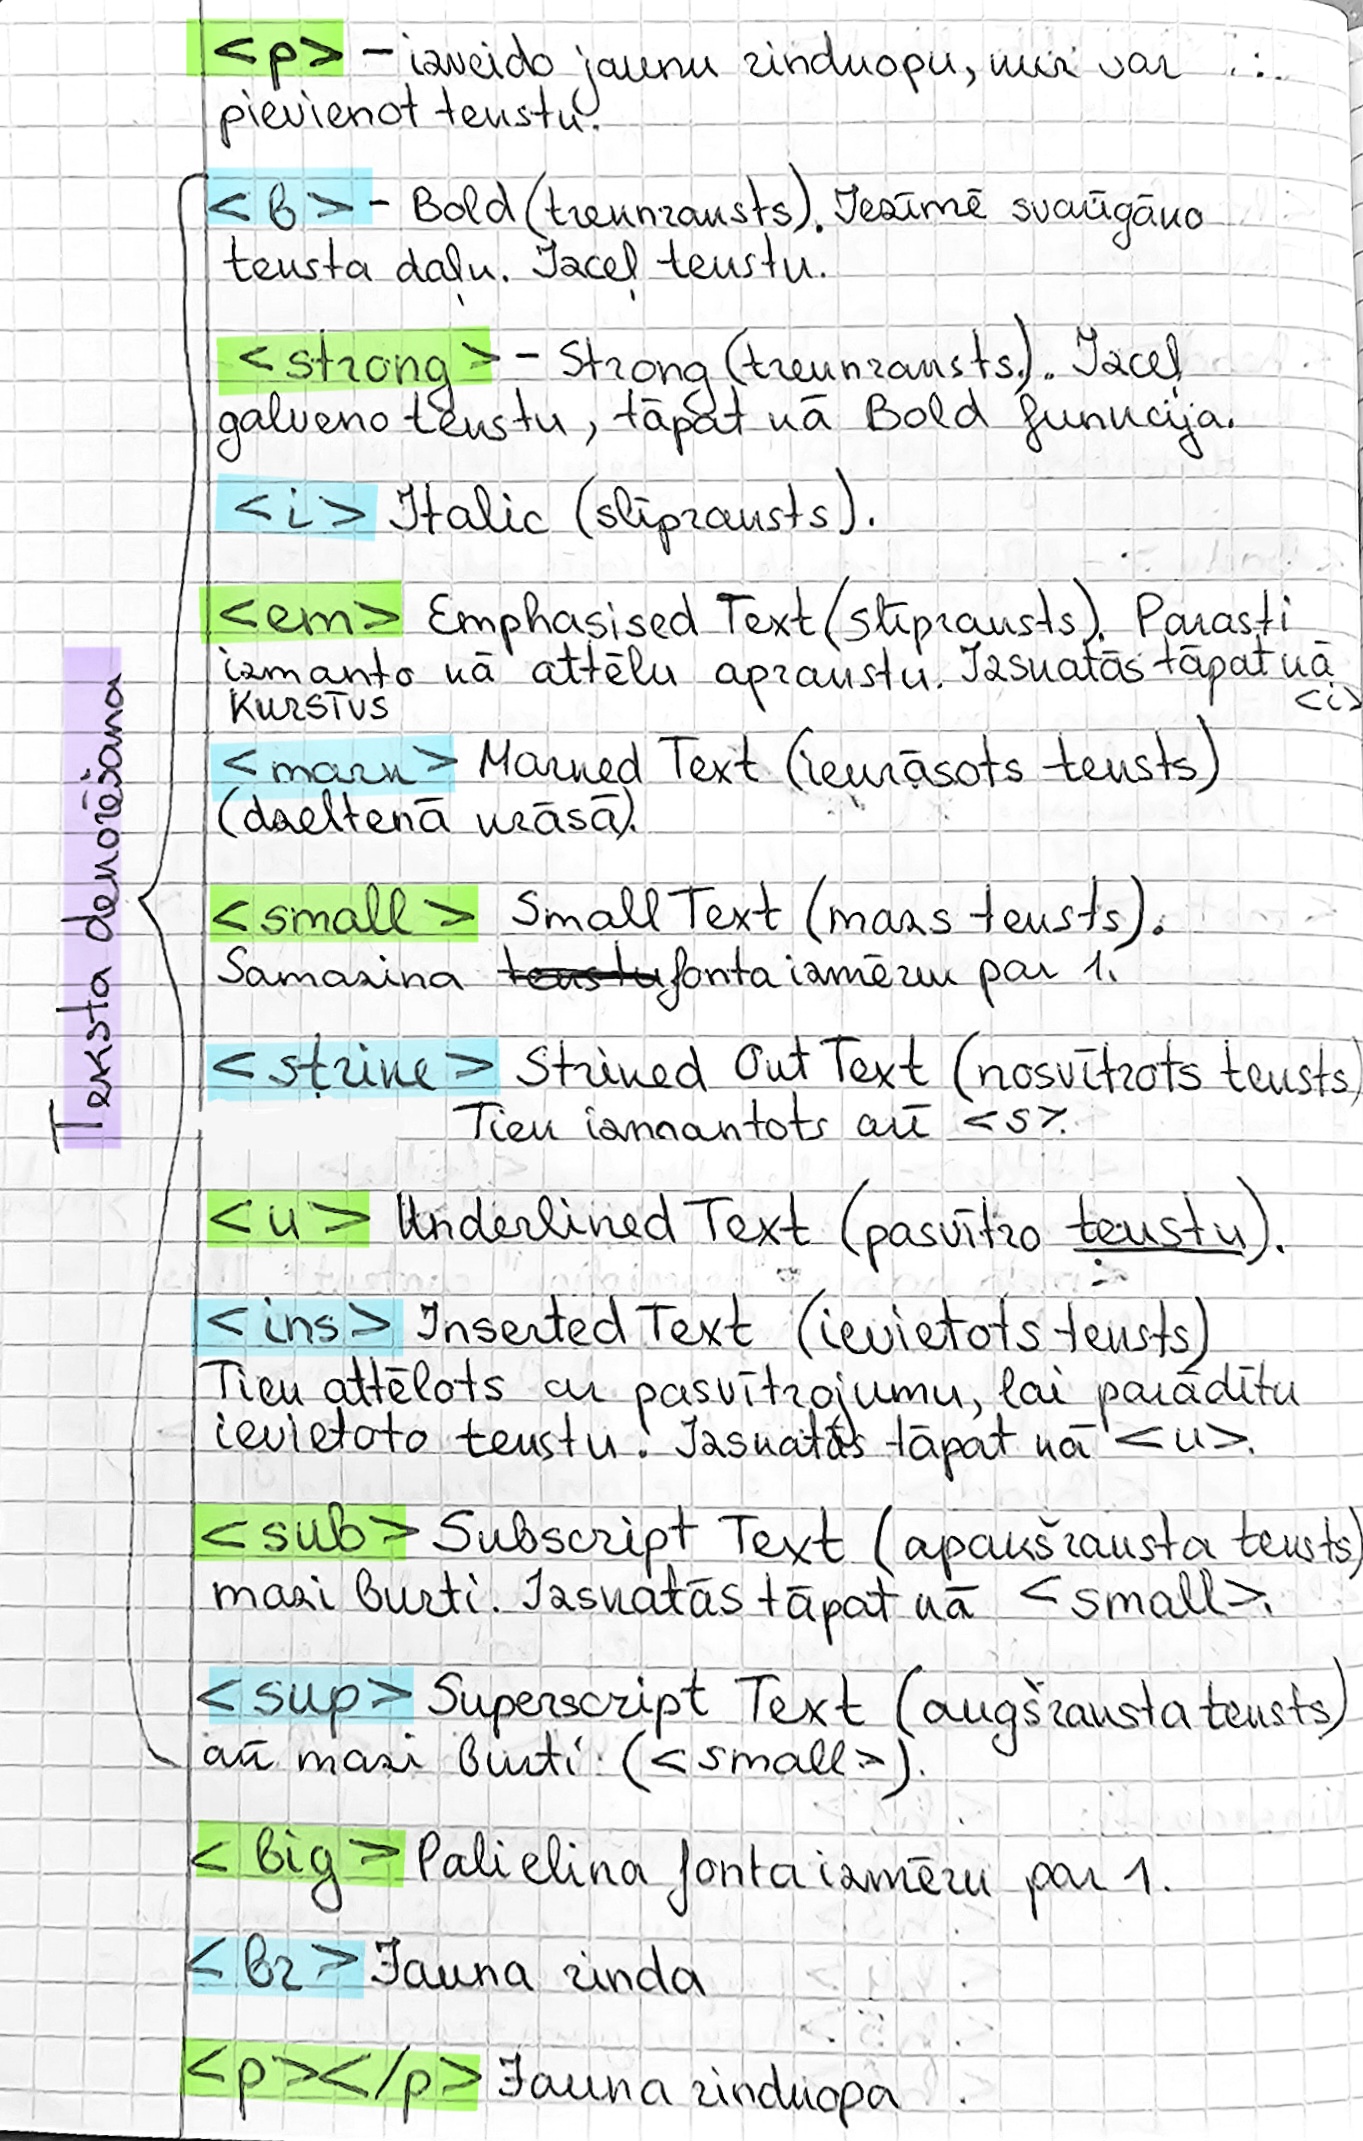 <p> – izveido jaunu rindkopu, kur var
pievienot tekstu.
<b> – Bold (treknraksts). Iezīmē svarīgāko
teksta daļu. Izceļ tekstu.
<strong> – Strong (treknraksts). Izceļ
galveno tekstu, tāpat kā Bold funkcija.
<i> Italic (slīpraksts).
<em> Emphasised Text (slīpraksts). Parasti
izmanto kā attēlu aprakstu. Izskatās tāpat kā
KURSĪVS <i>
<mark> Marked Text (iekrāsots teksts)
(dzeltenā krāsā).
Teksta dekorēšana
<small> Small Text (mazs teksts).
Samazina tekstu fonta izmēru par 1.
<strike> Striked Out Text (nosvītrots teksts)
Tiek izmantots arī <s>.
<u> Underlined Text (pasvītro tekstu).
<ins> Inserted Text (ievietots teksts)
Tiek attēlots ar pasvītrojumu, lai parādītu
ievietoto tekstu. Izskatās tāpat kā <u>.
<sub> Subscript Text (apakšraksta teksts)
mazi burti. Izskatās tāpat kā <small>.
<sup> Superscript Text (augšraksta teksts)
arī mazi burti (<small>).
<big> Palielina fonta izmēru par 1.
<br> Jauna rinda
<p></p> Jauna rindkopa